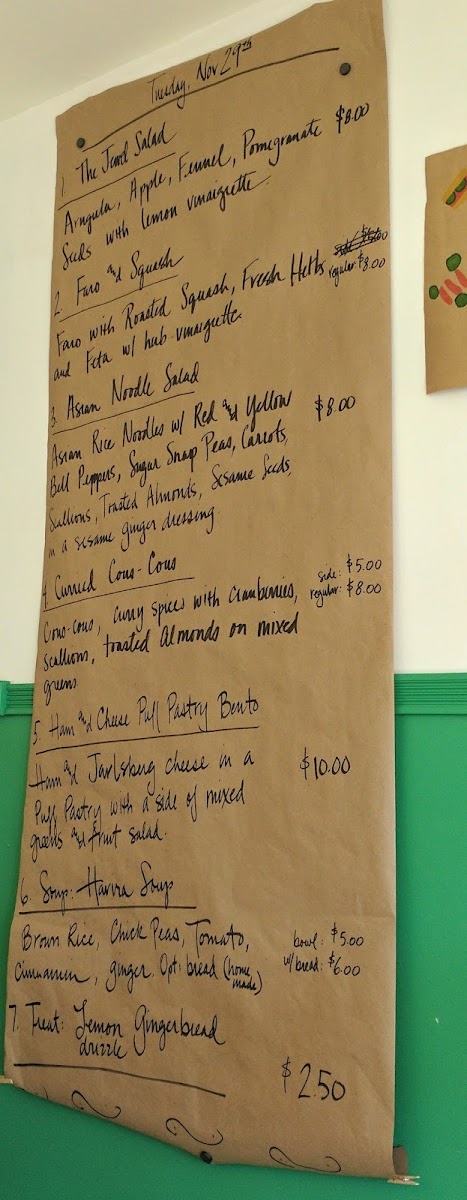 Tuesday, Nov 29th
1. The Jewel Salad
Arugula, Apple, Fennel, Pomegranate $8.00
Seeds with lemon vinaigrette.
2. Faro and Squash
side $5.00
Faro with Roasted Squash, Fresh Herbs regular: $8.00
and Feta w/ herb vinaigrette
3. Asian Noodle Salad
Asian Rice Noodles w/ Red and Yellow $8.00
Bell Peppers, Sugar Snap Peas, Carrots,
Scallions, Toasted Almonds, Sesame Seeds,
in a sesame ginger dressing
4. Curried Cous-Cous
side: $5.00
Cous-cous, curry spices with cranberries, regular: $8.00
scallions, toasted Almonds on mixed
greens
5. Ham and Cheese Puff Pastry Bento
Ham and Jarlsberg cheese in a $10.00
Puff Pastry with a side of mixed
greens and fruit salad.
6. Soup: Harira Soup
Brown Rice, Chick Peas, Tomato, bowl: $5.00
Cinnamin, ginger. Opt: bread (home made) w/bread: $6.00
7. Treat: Lemon Gingerbread
drizzle
$2.50